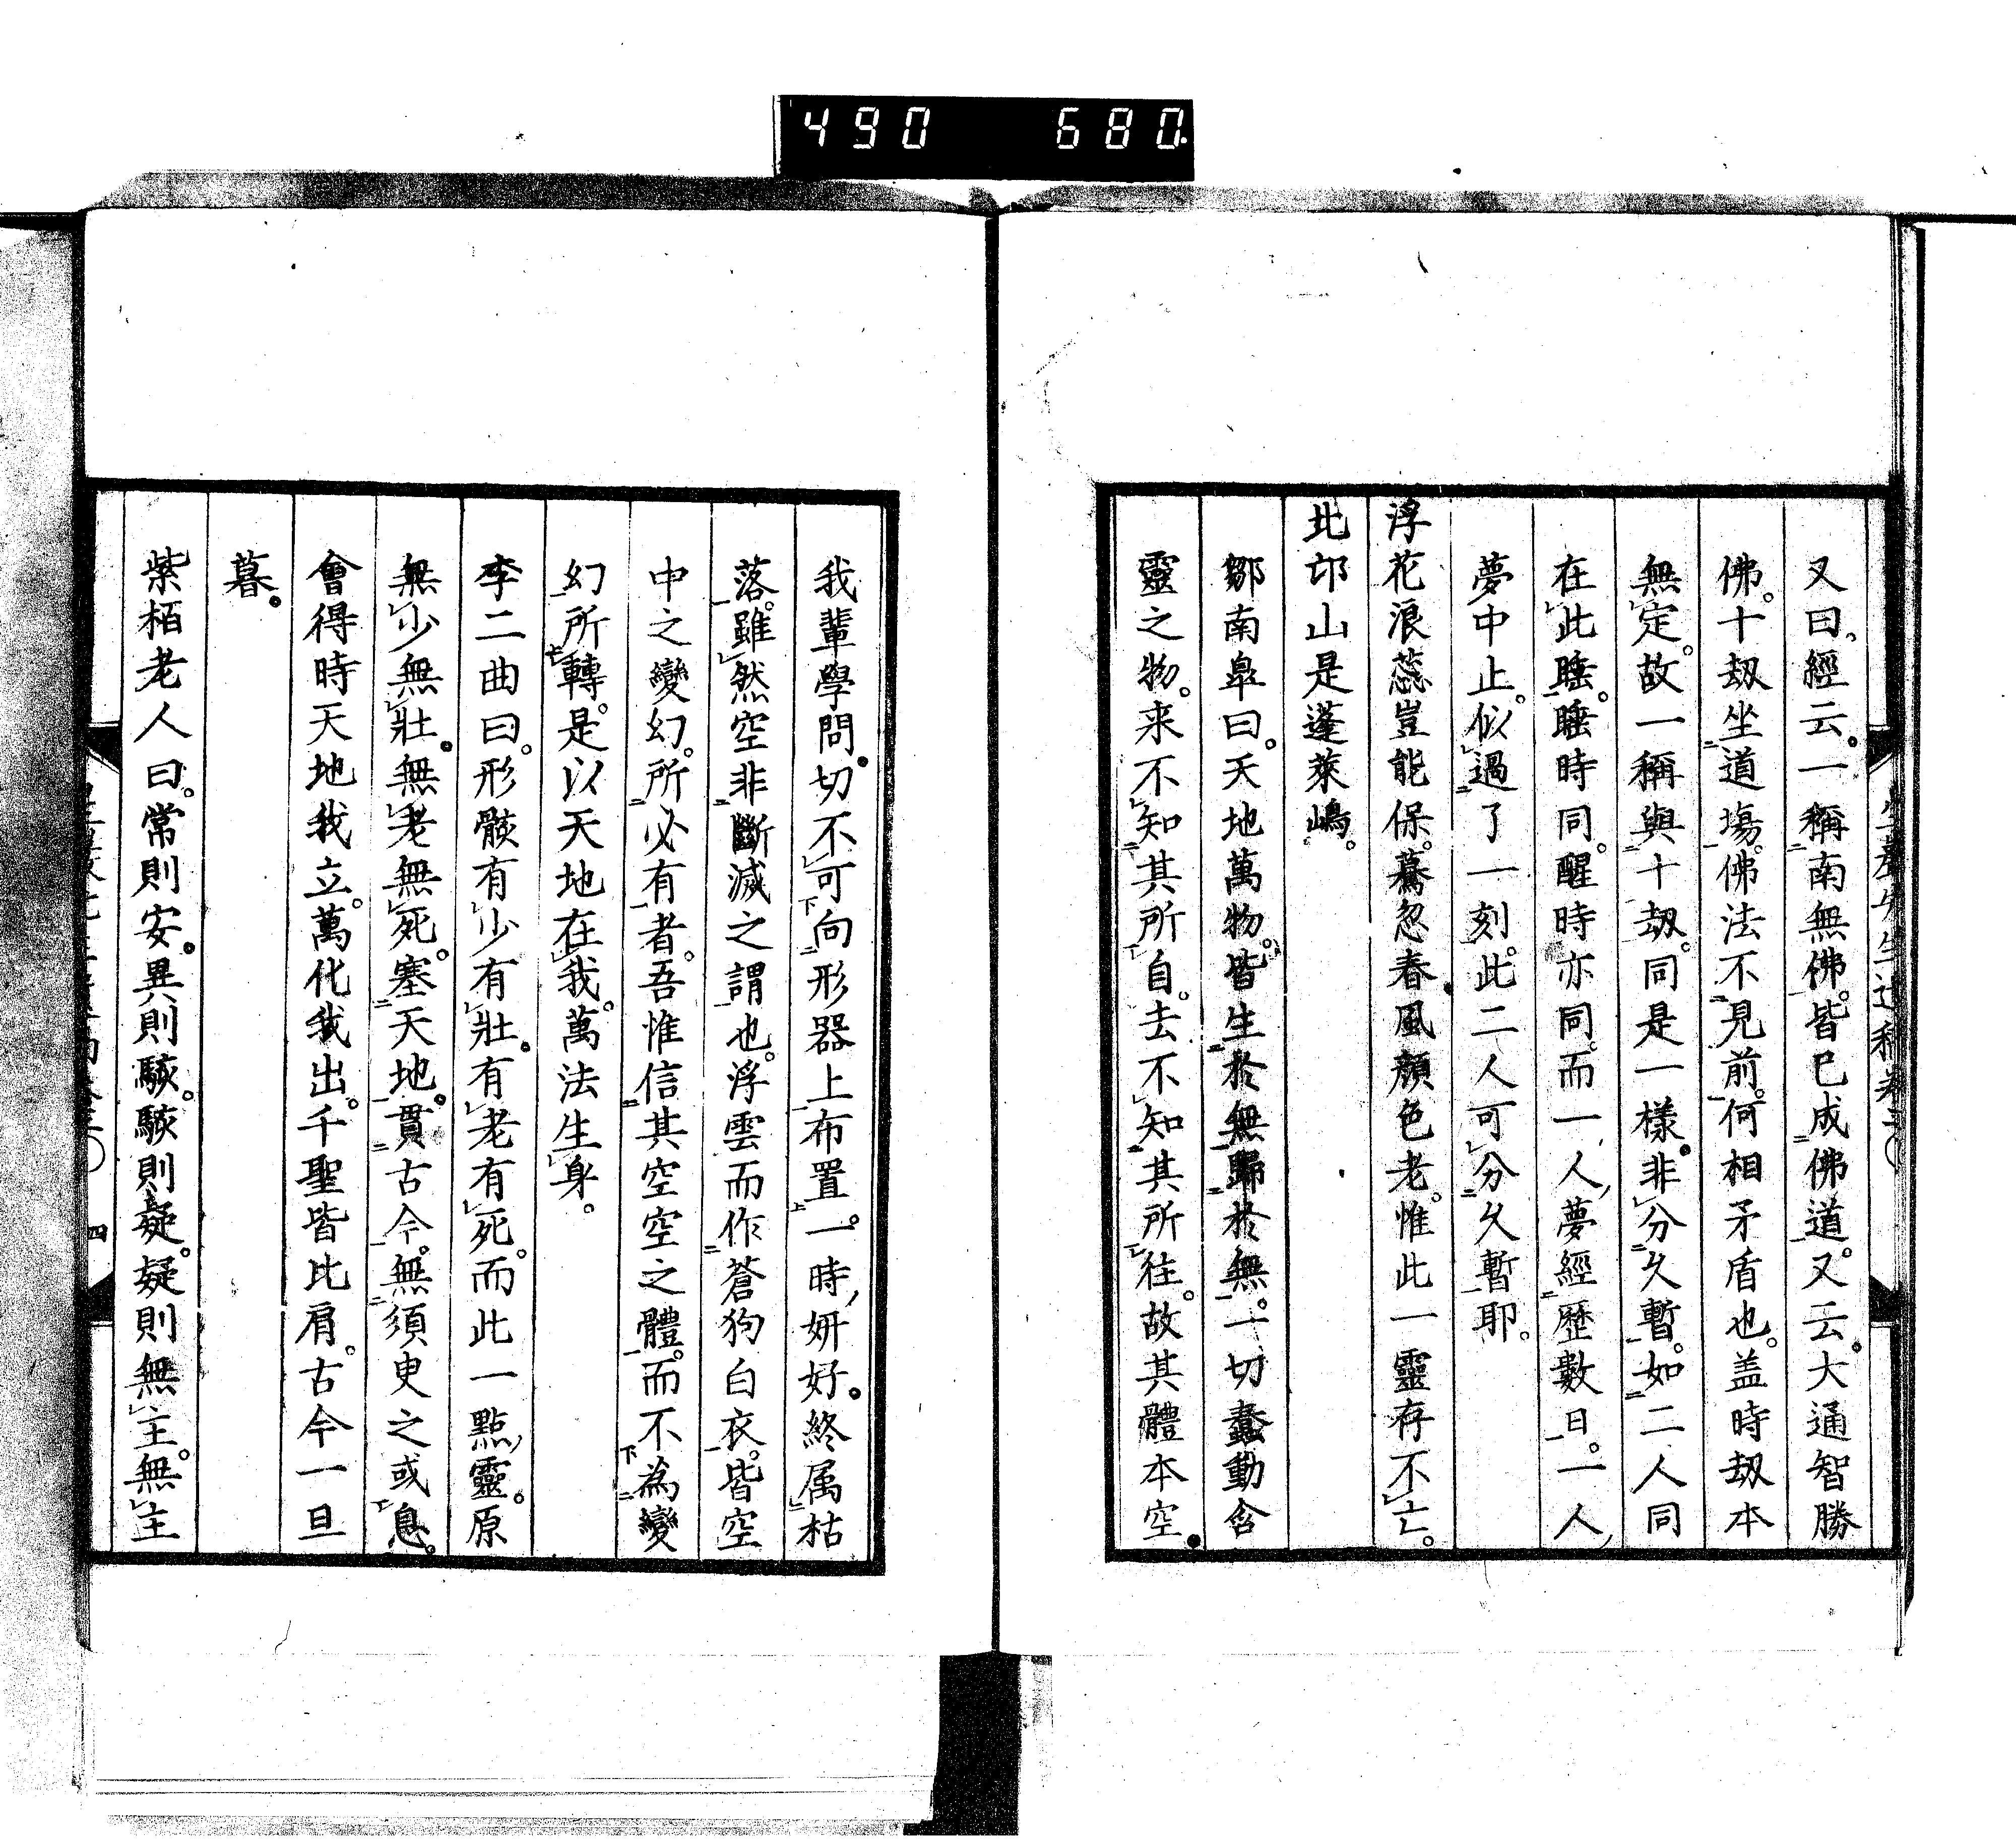 490 680
又曰。經云。一稱南無佛。皆已成佛道。又云。大通智勝
佛。十劫坐道場。佛法不見前。何相矛盾也。盖時劫本
無定。故一稱與十劫。同是一樣。非分久暫。如二人同
在此睡。睡時同。醒時亦同。而一人夢經歷數日。一人
夢中止。似過了一刻。此二人可分久暫耶。
浮花浪蕊豈能保。驀忽春風顏色老。惟此一靈存不亡。
北邙山是蓬萊嶋。
鄒南臯曰。天地萬物。皆生於無。歸於無。一切蠢動含
靈之物。来不知其所自。去不知其所往。故其體本空。
我輩學問。切不可向形器上布置。一時妍好。終属枯
落。雖然空非斷滅之謂也。浮雲而作蒼狗白衣。皆空
中之變幻。所必有者。吾惟信其空空之體。而不為變
幻所轉。是以天地在我。萬法生身。
李二曲曰。形骸有少有壯。有老有死。而此一點靈。原
無少無壯。無老無死。塞天地。貫古今。無須臾之或息。
會得時天地我立。萬化我出。千聖皆比肩。古今一旦
暮。
紫栢老人曰。常則安。異則駭。駭則疑。疑則無主。無主
四